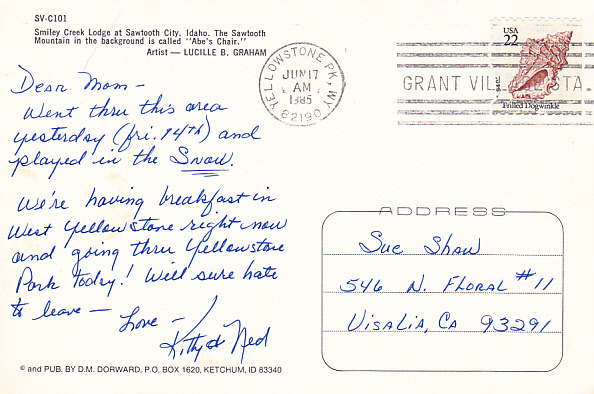 SV-C101
Smiley Creek Lodge at Sawtooth City, Idaho. The Sawtooth
Mountain in the background is called "Abe's Chair."
Artist — LUCILLE B. GRAHAM
USA
22
Frilled Dogwinkle
YELLOWSTONE PK, WY
JUN 17
AM
1985
82190
GRANT VIL STA.
Dear Mom —
Went thru this area
yesterday (fri. 14TH) and
played in the SNOW.
We're having breakfast in
West Yellowstone right now
and going thru Yellowstone
Park Today! Will sure hate
to leave —
Love —
Kitty & Ned
ADDRESS
Sue Shaw
546 N. FLORAL #11
VISALIA, CA 93291
© and PUB. BY D.M. DORWARD, P.O. BOX 1620, KETCHUM, ID 83340